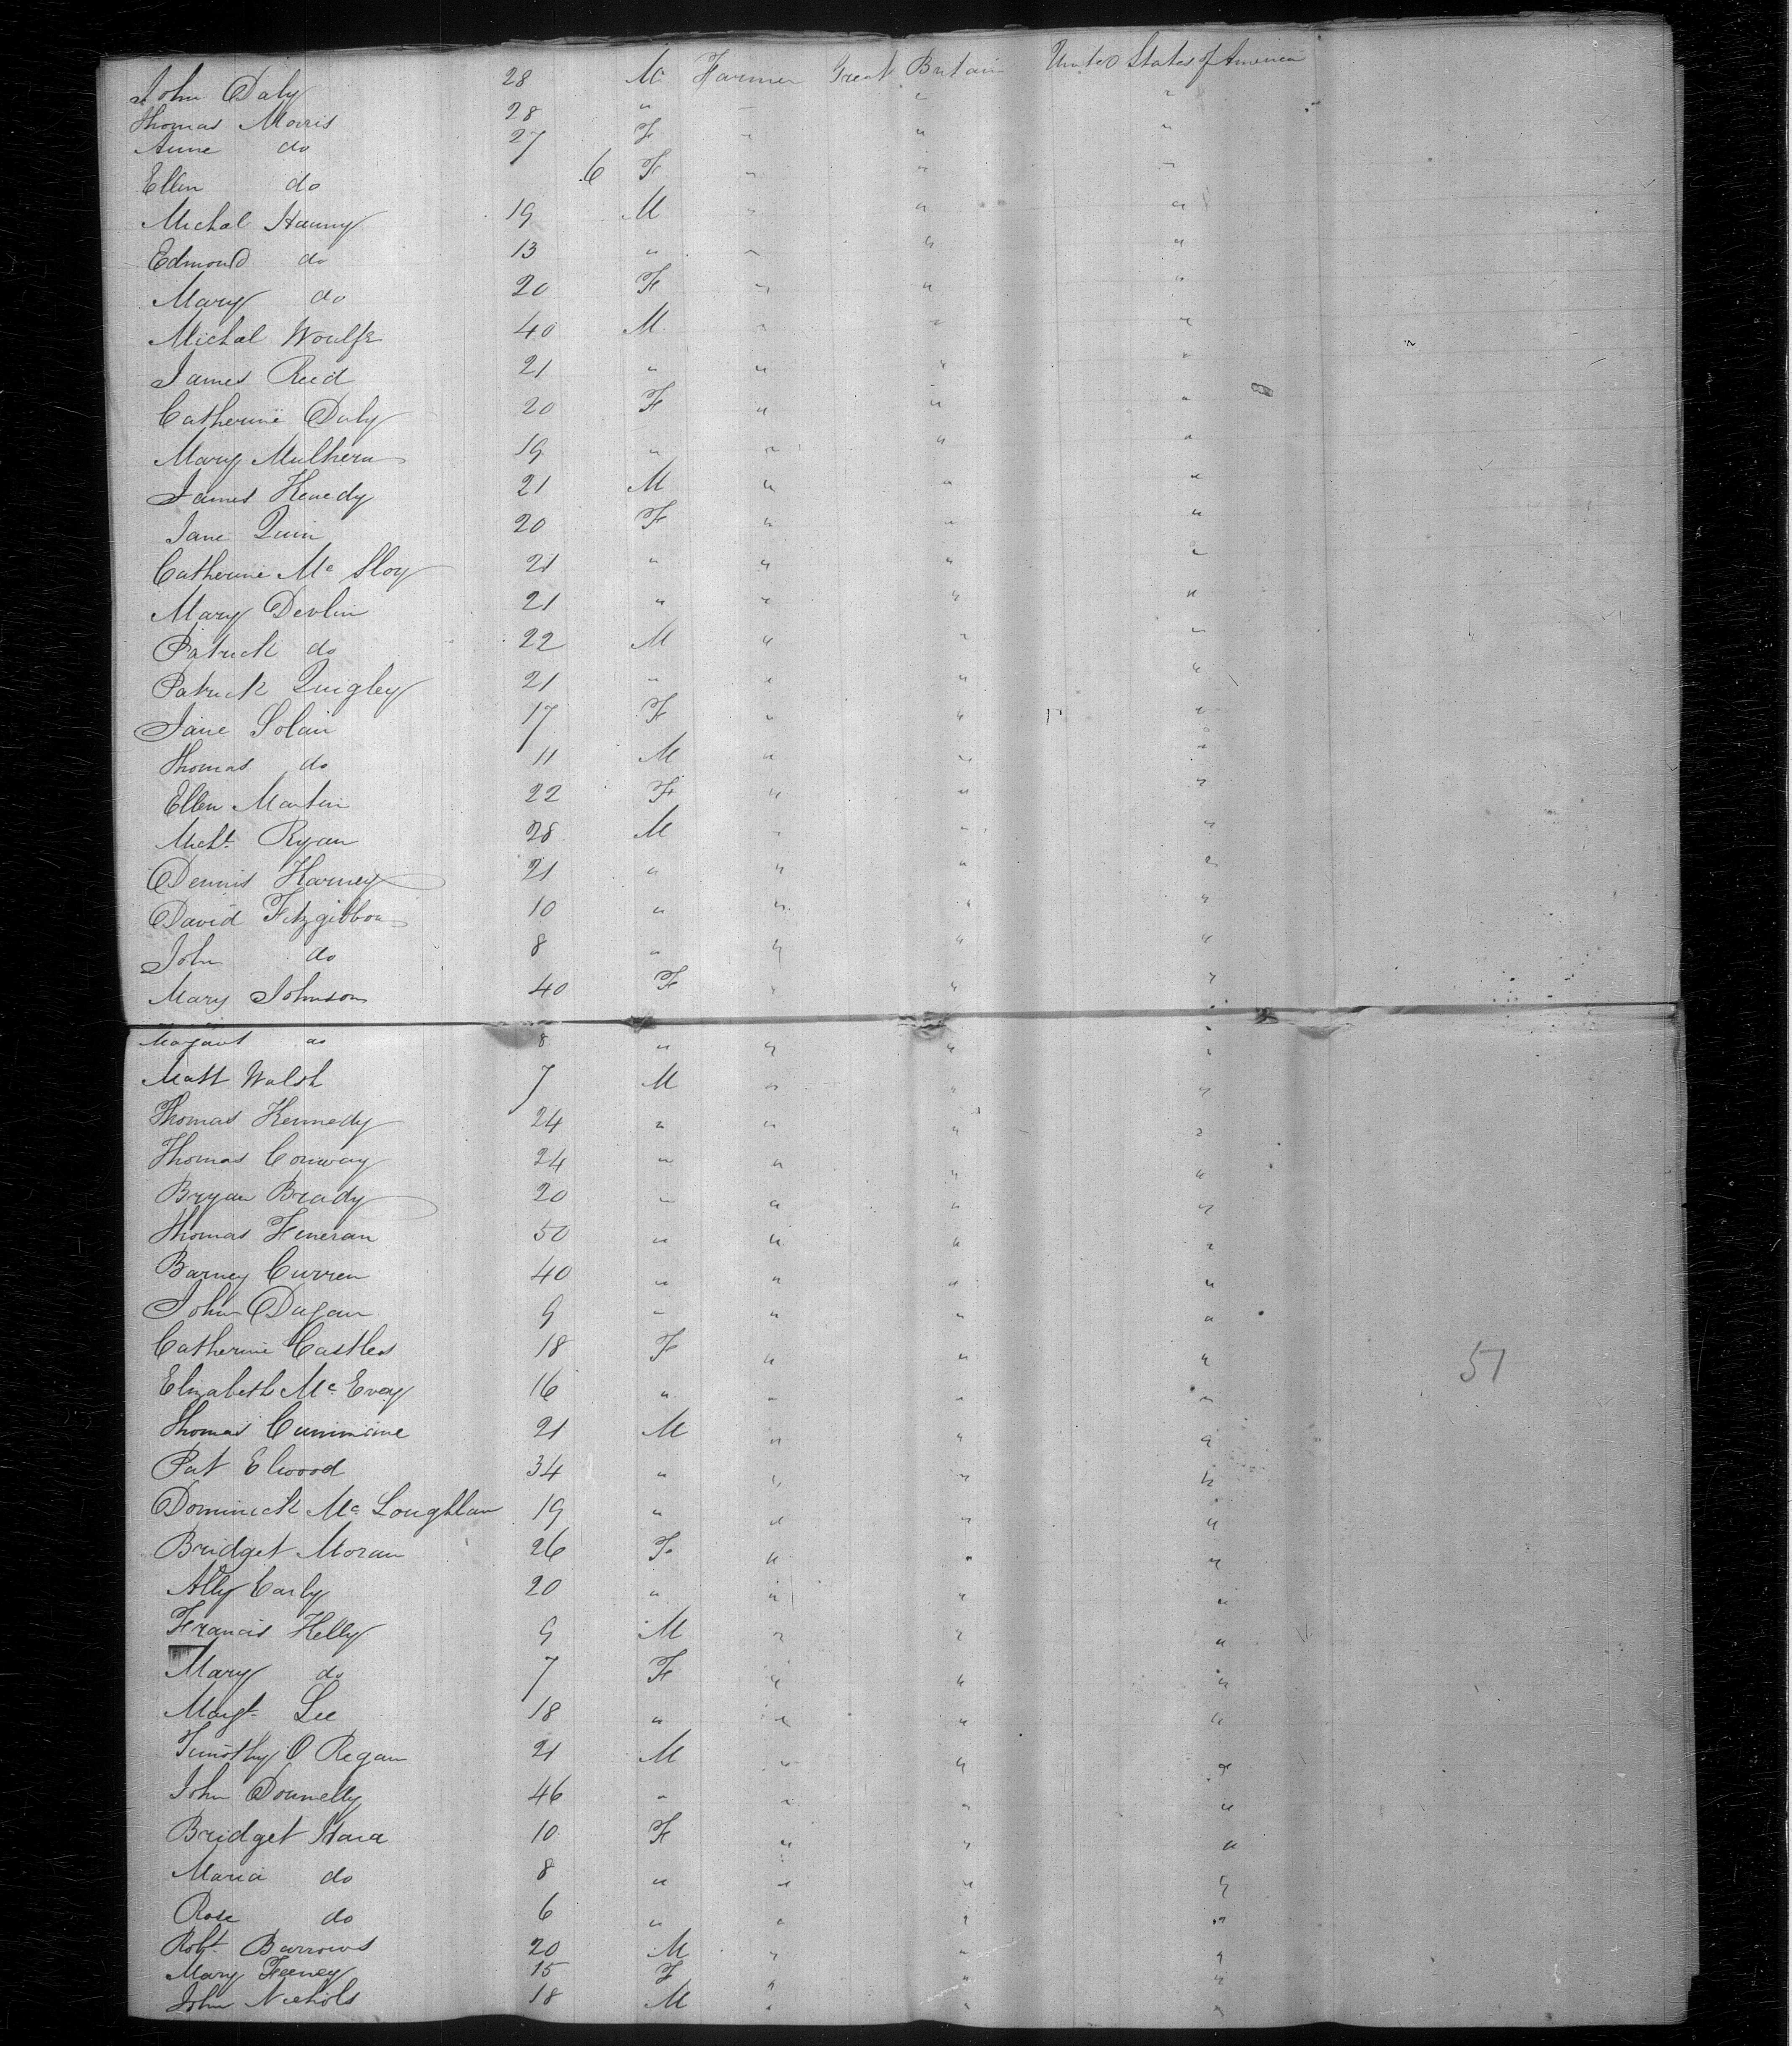 John Daly 28 M Farmer Great Britain United States of America
Thomas Morris 28 " " " "
Anne do 27 F " " "
Ellen do 6 F " " "
Michal Hanny 19 M " " "
Edmond do 13 " " " "
Mary do 20 F " " "
Michal Woulfe 40 M " " "
James Reid 21 " " " "
Catherine Daly 20 F " " "
Mary Mulhern 19 " " " "
James Kenedy 21 M " " "
Jane Quin 20 F " " "
Catherine Mc Sloy 21 " " " "
Mary Devlin 21 " " " "
Patrick do 22 M " " "
Patrick Quigley 21 " " " "
Jane Solan 17 F " " "
Thomas do 11 M " " "
Ellen Martin 22 F " " "
Michl. Ryan 28 M " " "
Dennis Harney 21 " " " "
David Fitzgibbon 10 " " " "
John do 8 " " " "
Mary Johnson 40 F " " "
Margaret do 8 " " " "
Matt Walsh 7 M " " "
Thomas Kennedy 24 " " " "
Thomas Conway 24 " " " "
Bryan Brady 20 " " " "
Thomas Feneran 50 " " " "
Barney Curren 40 " " " "
John Dugan 9 " " " "
Catherine Castles 18 F " " "
51
Elizabeth Mc Evoy 16 " " " "
Thomas Cummine 21 M " " "
Pat Elwood 34 " " " "
Dominick Mc Loughlan 19 " " " "
Bridget Moran 26 F " " "
Ally Carly 20 " " " "
Francis Kelly 9 M " " "
Mary do 7 F " " "
Margt. Lee 18 " " " "
Timothy O Regan 21 M " " "
John Donnelly 46 " " " "
Bridget Hara 10 F " " "
Maria do 8 " " " "
Rose do 6 " " " "
Robt. Burrows 20 M " " "
Mary Feeney 15 F " " "
John Nichols 18 M " " "